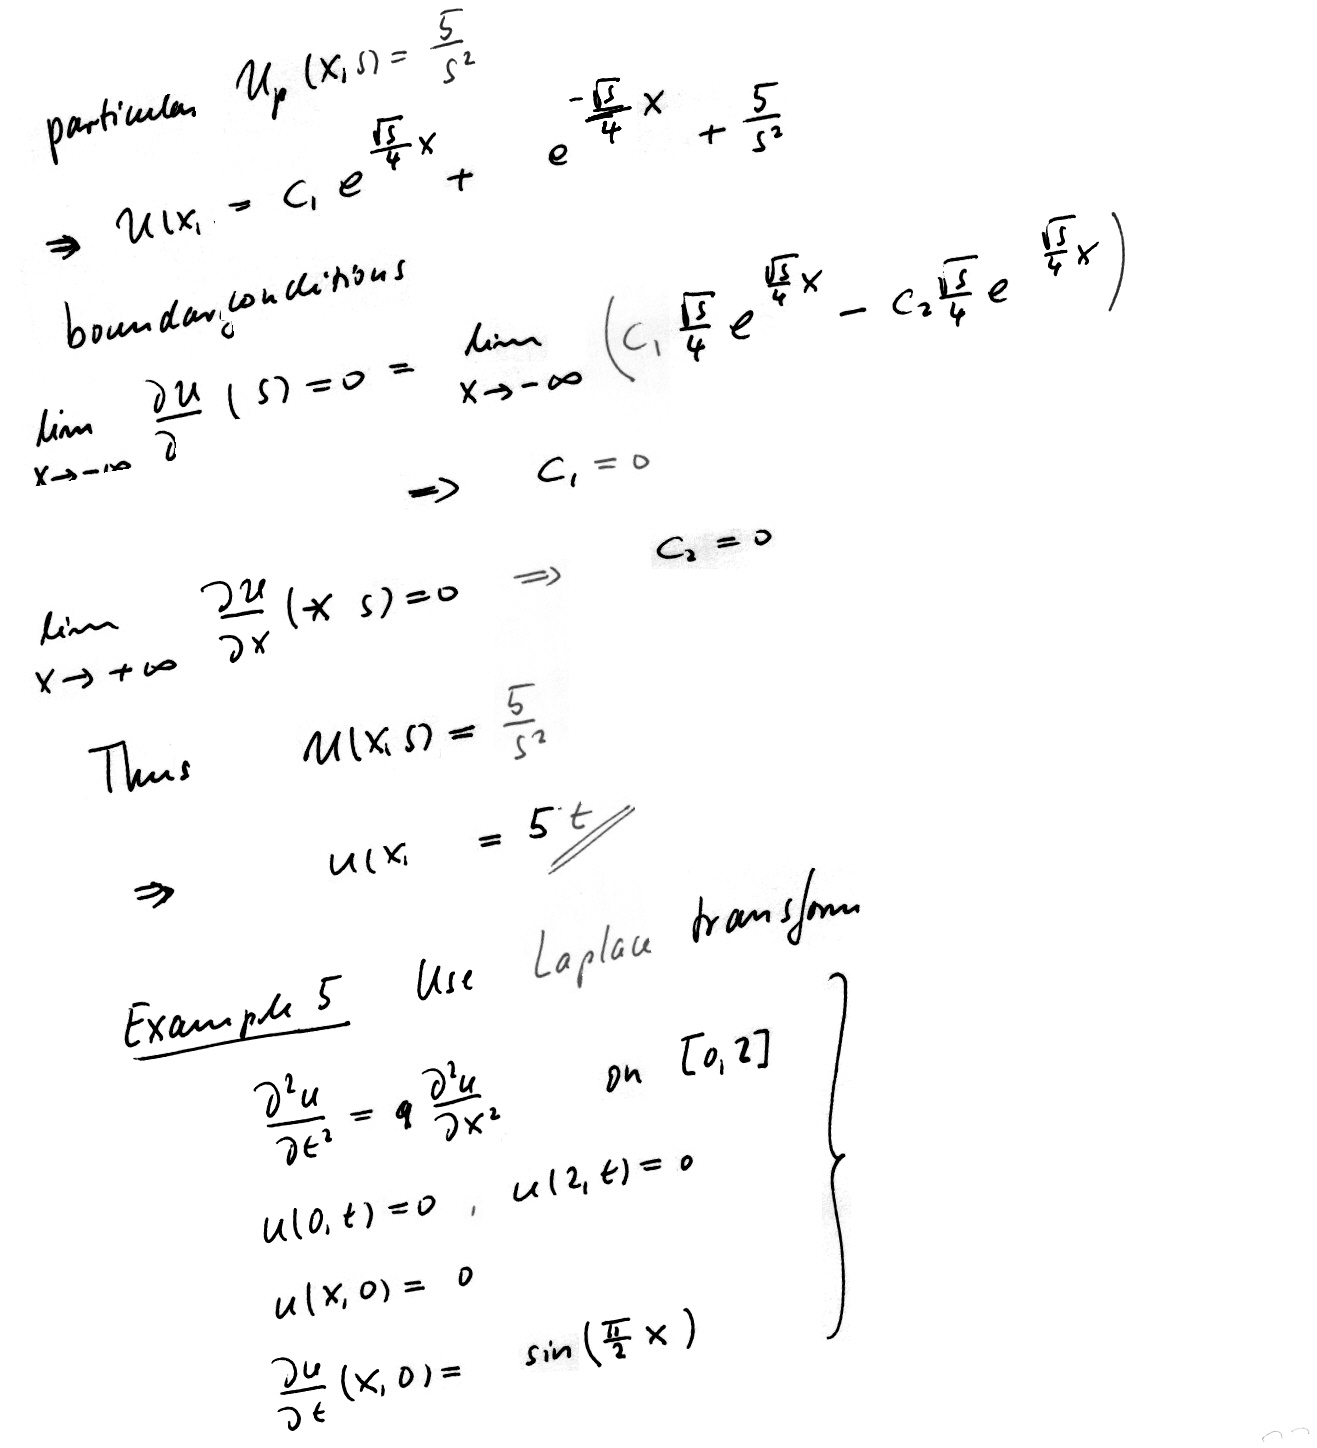 particular U_p (x, s) = 5/s²
⇒ U(x, = C₁ e^{√s/4 x} + e^{-√s/4 x} + 5/s²
boundary conditions
lim_{x→-∞} ∂U/∂ ( s) = 0 = lim_{x→-∞} (C₁ √s/4 e^{√s/4 x} - C₂ √s/4 e^{√s/4 x})
⇒ C₁ = 0
lim_{x→+∞} ∂U/∂x (x s) = 0 ⇒ C₂ = 0
Thus U(x, s) = 5/s²
⇒ u(x, = 5·t
Example 5 Use Laplace transform
∂²u/∂t² = 9 ∂²u/∂x² on [0, 2]
u(0, t) = 0 , u(2, t) = 0
u(x, 0) = 0
∂u/∂t (x, 0) = sin(π/2 x)